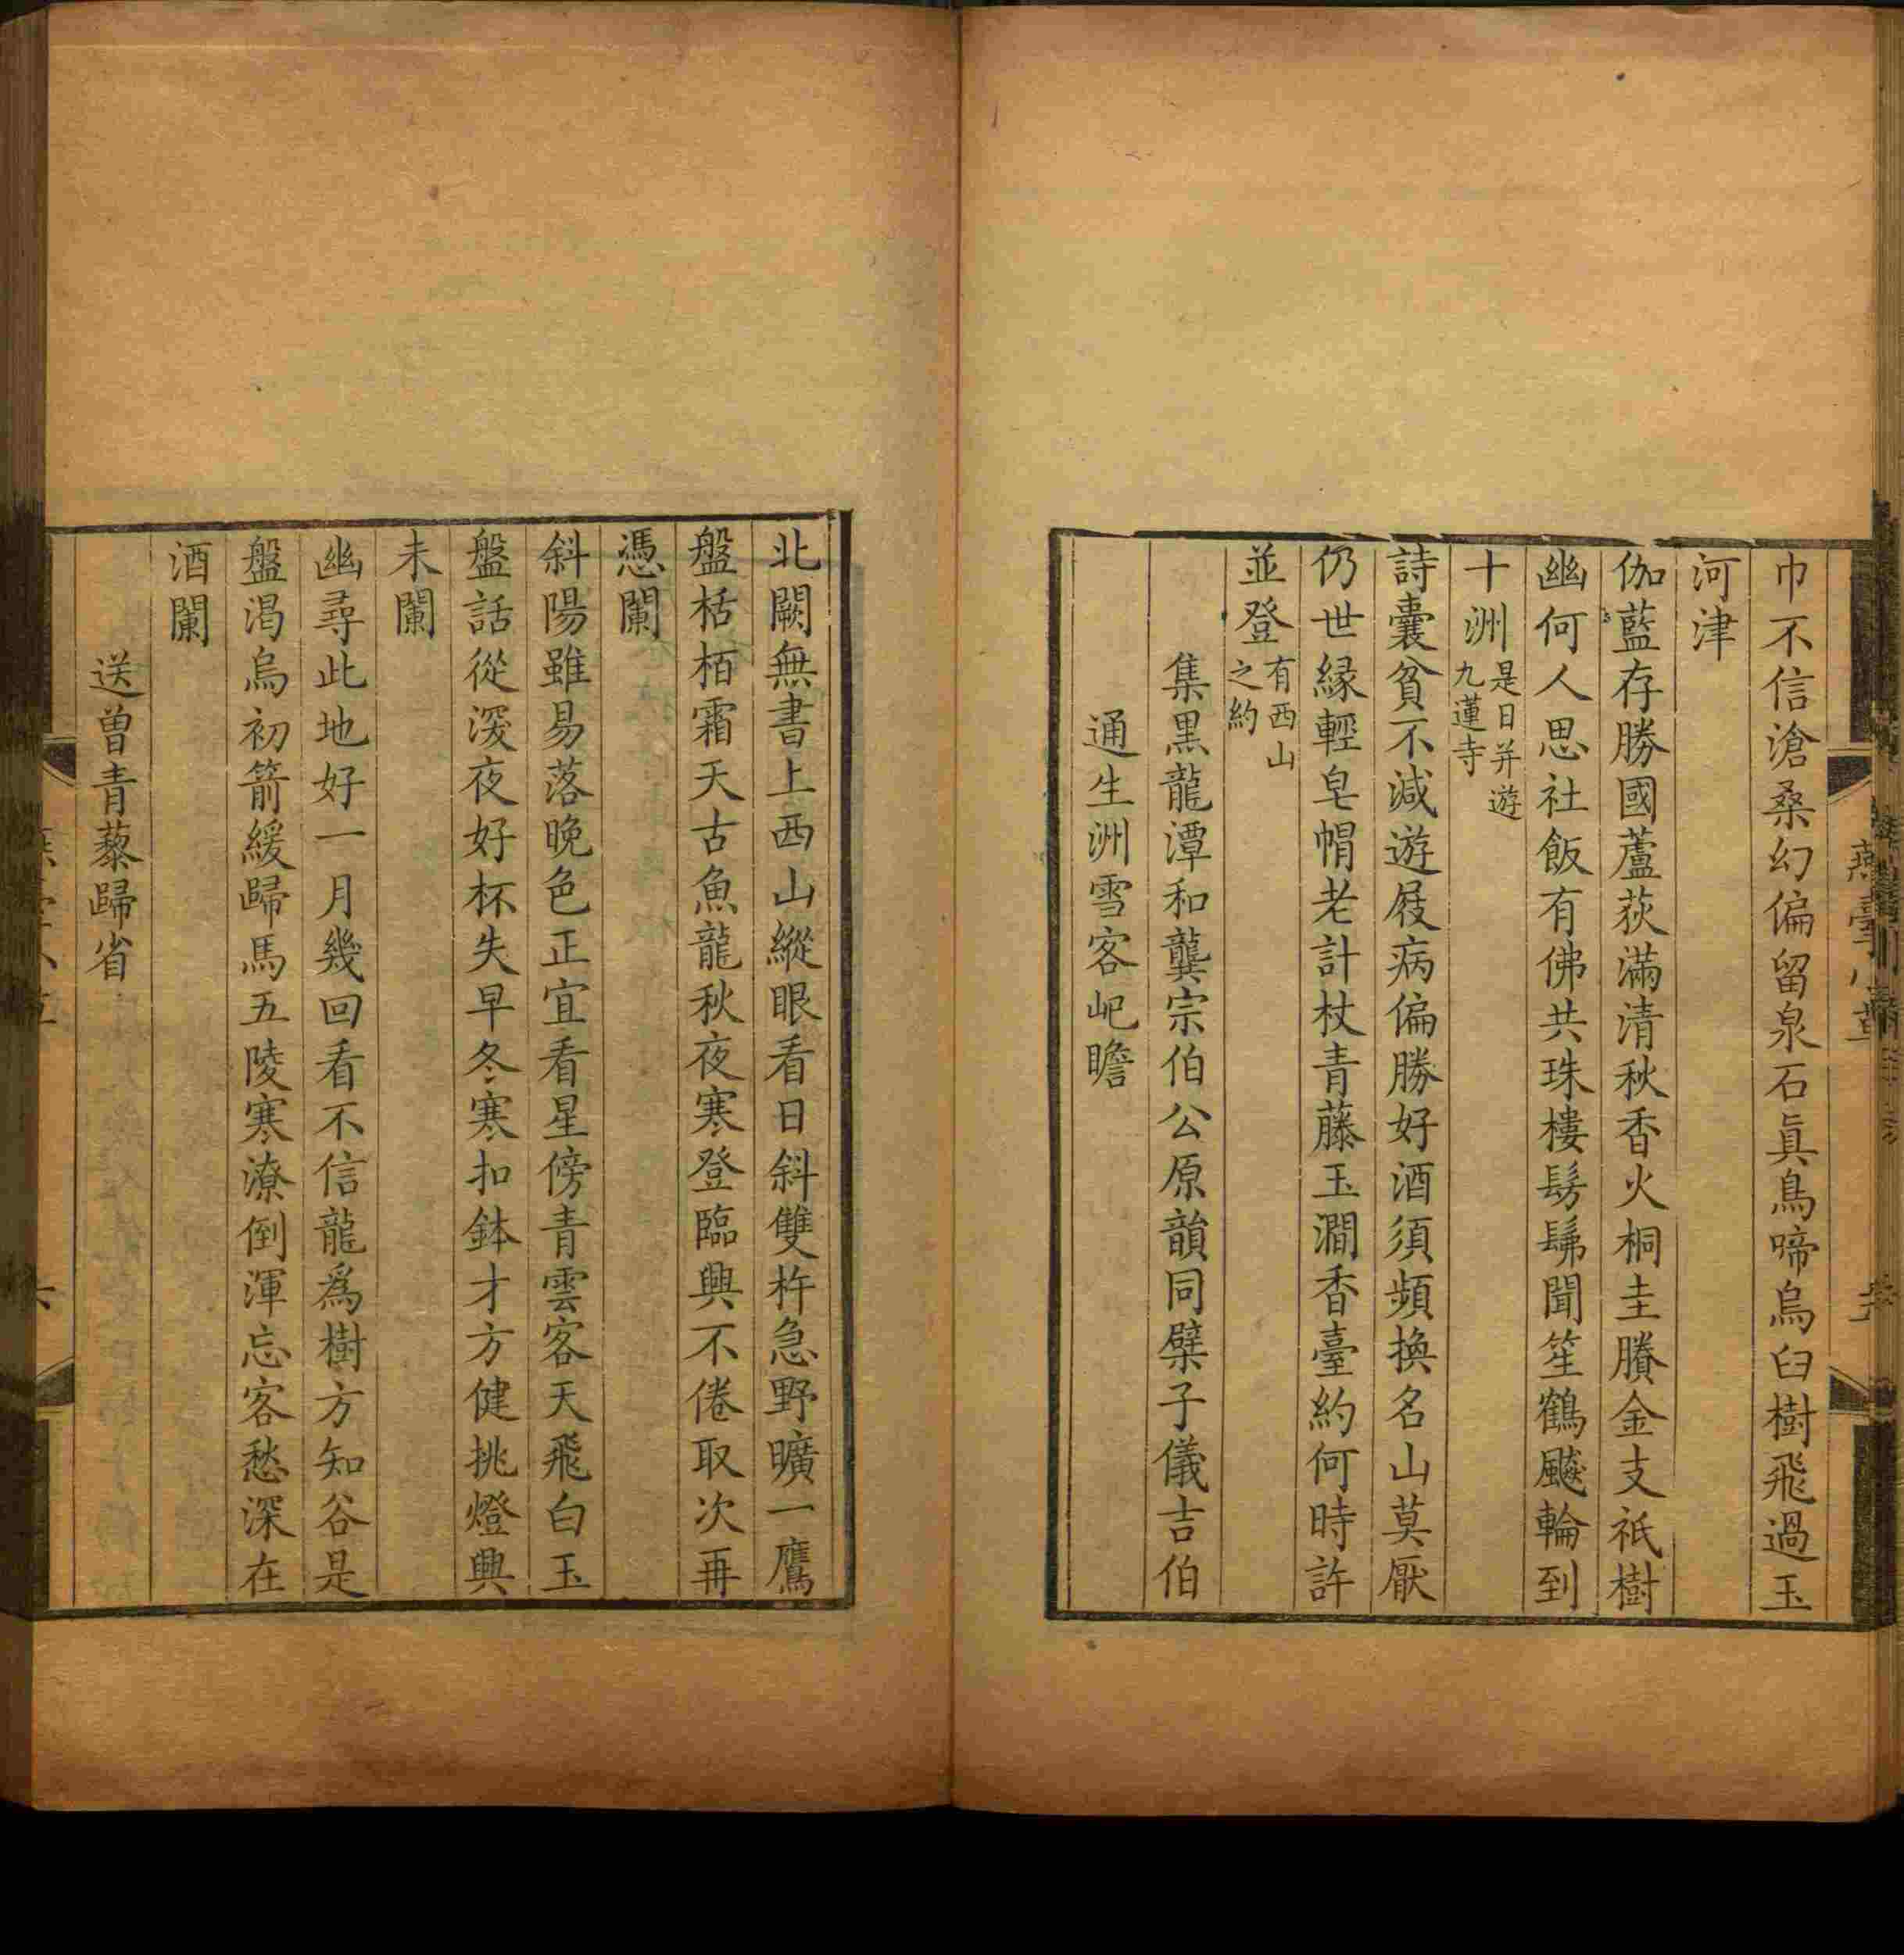 巾不信滄桑幻偏留泉石眞鳥啼烏臼樹飛過玉
河津
伽藍存勝國蘆荻滿清秋香火桐圭賸金支祇樹
幽何人思社飯有佛共珠樓髣髴聞笙鶴飈輪到
十洲是日并遊
九蓮寺
詩囊貧不減遊屐病偏勝好酒須頻換名山莫厭
仍世縁輕皂帽老計杖青藤玉澗香臺約何時許
並登有西山
之約
集黑龍潭和龔宗伯公原韻同檗子儀吉伯
通生洲雪客屺瞻
北闕無書上西山縱眼看日斜雙杵急野曠一鷹
盤栝栢霜天古魚龍秋夜寒登臨興不倦取次再
憑闌
斜陽雖易落晚色正宜看星傍青雲客天飛白玉
盤話從深夜好杯失早冬寒扣鉢才方健挑燈興
未闌
幽尋此地好一月幾回看不信龍爲樹方知谷是
盤渴烏初箭緩歸馬五陵寒潦倒渾忘客愁深在
酒闌
送曾青藜歸省